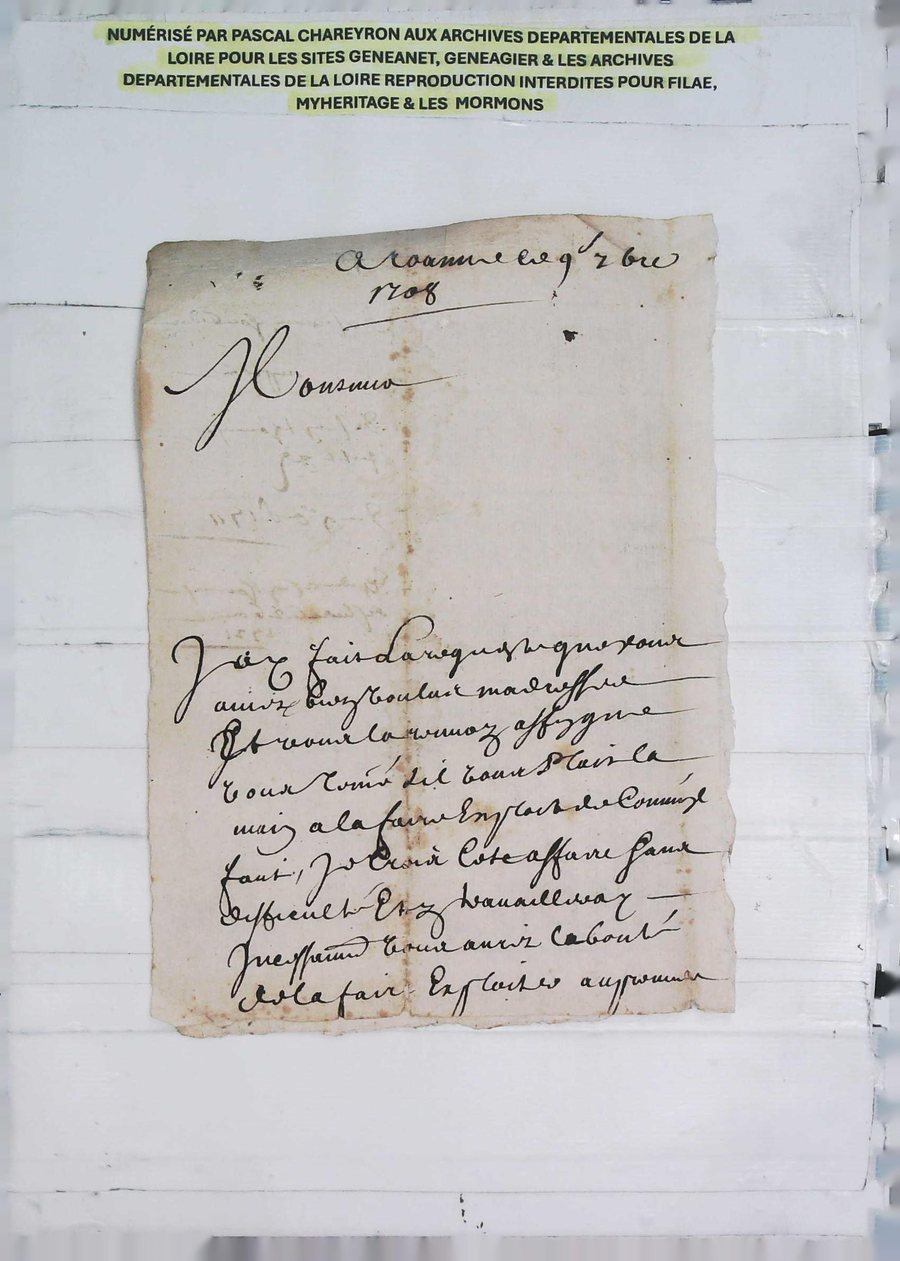 NUMÉRISÉ PAR PASCAL CHAREYRON AUX ARCHIVES DEPARTEMENTALES DE LA
LOIRE POUR LES SITES GENEANET, GENEAGIER & LES ARCHIVES
DEPARTEMENTALES DE LA LOIRE REPRODUCTION INTERDITES POUR FILAE,
MYHERITAGE & LES MORMONS
A roanne le 9e 7bre
1708
Monsieur
Jay fait la requeste que vous
aviez bien voulu madresser
Et vous la renvoy
vous sil vous plait la
main a la faire Exploiter
faut, Je Croy cete affaire sans
difficulté Et travailleray
Incessamt vous aurez la bonté
de la faire Exploiter au premier